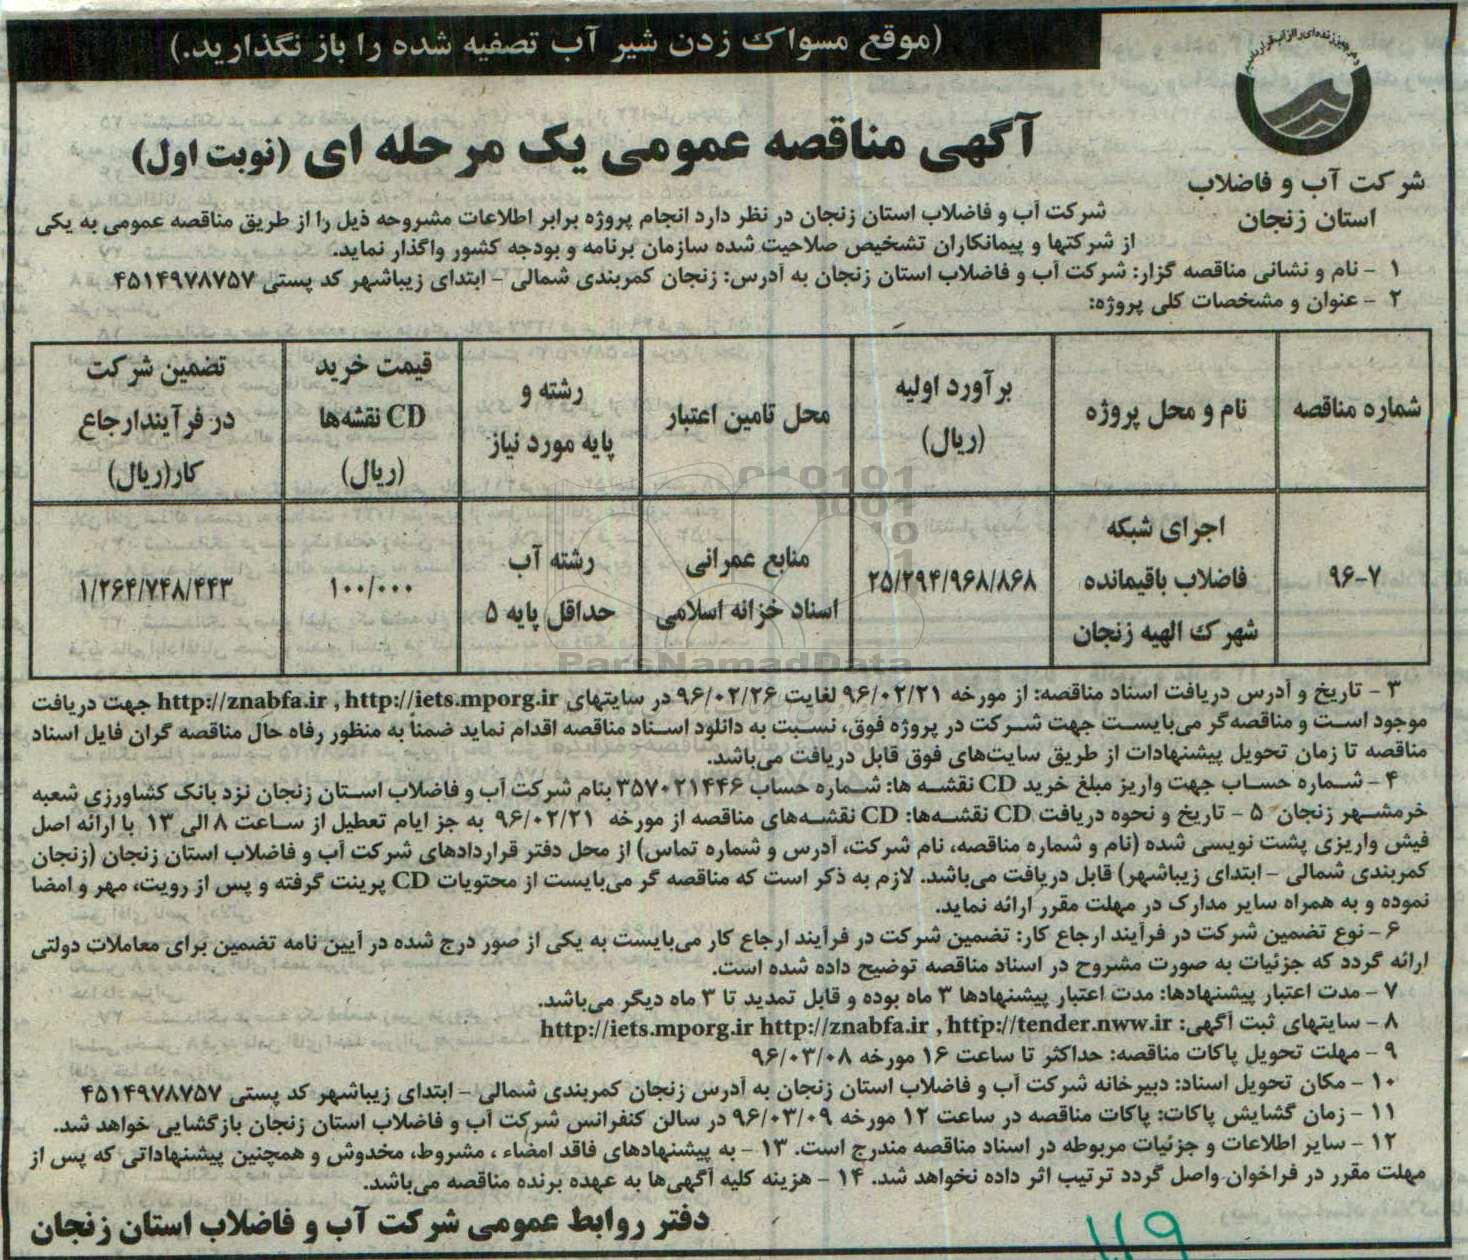 (موقع مسواک زدن شیر آب تصفیه شده را باز نگذارید.)
شرکت آب و فاضلاب
استان زنجان
آگهی مناقصه عمومی یک مرحله ای (نوبت اول)
شرکت آب و فاضلاب استان زنجان در نظر دارد انجام پروژه برابر اطلاعات مشروحه ذیل را از طریق مناقصه عمومی به یکی
از شرکتها و پیمانکاران تشخیص صلاحیت شده سازمان برنامه و بودجه کشور واگذار نماید.
۱ - نام و نشانی مناقصه گزار: شرکت آب و فاضلاب استان زنجان به آدرس: زنجان کمربندی شمالی - ابتدای زیباشهر کد پستی ۴۵۱۴۹۷۸۷۵۷
۲ - عنوان و مشخصات کلی پروژه:
شماره مناقصه
نام و محل پروژه
برآورد اولیه
(ریال)
محل تامین اعتبار
رشته و
پایه مورد نیاز
قیمت خرید
CD نقشه‌ها
(ریال)
تضمین شرکت
در فرآیندارجاع
کار(ریال)
۹۶-۷
اجرای شبکه
فاضلاب باقیمانده
شهرک الهیه زنجان
۲۵/۲۹۴/۹۶۸/۸۶۸
منابع عمرانی
اسناد خزانه اسلامی
رشته آب
حداقل پایه ۵
۱۰۰/۰۰۰
۱/۲۶۴/۷۴۸/۴۴۳
ParsNamadData
۳ - تاریخ و آدرس دریافت اسناد مناقصه: از مورخه ۹۶/۰۲/۲۱ لغایت ۹۶/۰۲/۲۶ در سایتهای http://znabfa.ir , http://iets.mporg.ir جهت دریافت
موجود است و مناقصه‌گر می‌بایست جهت شرکت در پروژه فوق، نسبت به دانلود اسناد مناقصه اقدام نماید ضمناً به منظور رفاه حال مناقصه گران فایل اسناد
مناقصه تا زمان تحویل پیشنهادات از طریق سایت‌های فوق قابل دریافت می‌باشد.
۴ - شماره حساب جهت واریز مبلغ خرید CD نقشه ها: شماره حساب ۳۵۷۰۲۱۴۴۶ بنام شرکت آب و فاضلاب استان زنجان نزد بانک کشاورزی شعبه
خرمشهر زنجان ۵ - تاریخ و نحوه دریافت CD نقشه‌ها: CD نقشه‌های مناقصه از مورخه ۹۶/۰۲/۲۱ به جز ایام تعطیل از ساعت ۸ الی ۱۳ با ارائه اصل
فیش واریزی پشت نویسی شده (نام و شماره مناقصه، نام شرکت، آدرس و شماره تماس) از محل دفتر قراردادهای شرکت آب و فاضلاب استان زنجان (زنجان
کمربندی شمالی - ابتدای زیباشهر) قابل دریافت می‌باشد. لازم به ذکر است که مناقصه گر می‌بایست از محتویات CD پرینت گرفته و پس از رویت، مهر و امضا
نموده و به همراه سایر مدارک در مهلت مقرر ارائه نماید.
۶ - نوع تضمین شرکت در فرآیند ارجاع کار: تضمین شرکت در فرآیند ارجاع کار می‌بایست به یکی از صور درج شده در آیین نامه تضمین برای معاملات دولتی
ارائه گردد که جزئیات به صورت مشروح در اسناد مناقصه توضیح داده شده است.
۷ - مدت اعتبار پیشنهادها: مدت اعتبار پیشنهادها ۳ ماه بوده و قابل تمدید تا ۳ ماه دیگر می‌باشد.
۸ - سایتهای ثبت آگهی: http://iets.mporg.ir http://znabfa.ir , http://tender.nww.ir
۹ - مهلت تحویل پاکات مناقصه: حداکثر تا ساعت ۱۶ مورخه ۹۶/۰۳/۰۸
۱۰ - مکان تحویل اسناد: دبیرخانه شرکت آب و فاضلاب استان زنجان به آدرس زنجان کمربندی شمالی - ابتدای زیباشهر کد پستی ۴۵۱۴۹۷۸۷۵۷
۱۱ - زمان گشایش پاکات: پاکات مناقصه در ساعت ۱۲ مورخه ۹۶/۰۳/۰۹ در سالن کنفرانس شرکت آب و فاضلاب استان زنجان بازگشایی خواهد شد.
۱۲ - سایر اطلاعات و جزئیات مربوطه در اسناد مناقصه مندرج است. ۱۳ - به پیشنهادهای فاقد امضاء ، مشروط، مخدوش و همچنین پیشنهاداتی که پس از
مهلت مقرر در فراخوان واصل گردد ترتیب اثر داده نخواهد شد. ۱۴ - هزینه کلیه آگهی‌ها به عهده برنده مناقصه می‌باشد.
دفتر روابط عمومی شرکت آب و فاضلاب استان زنجان